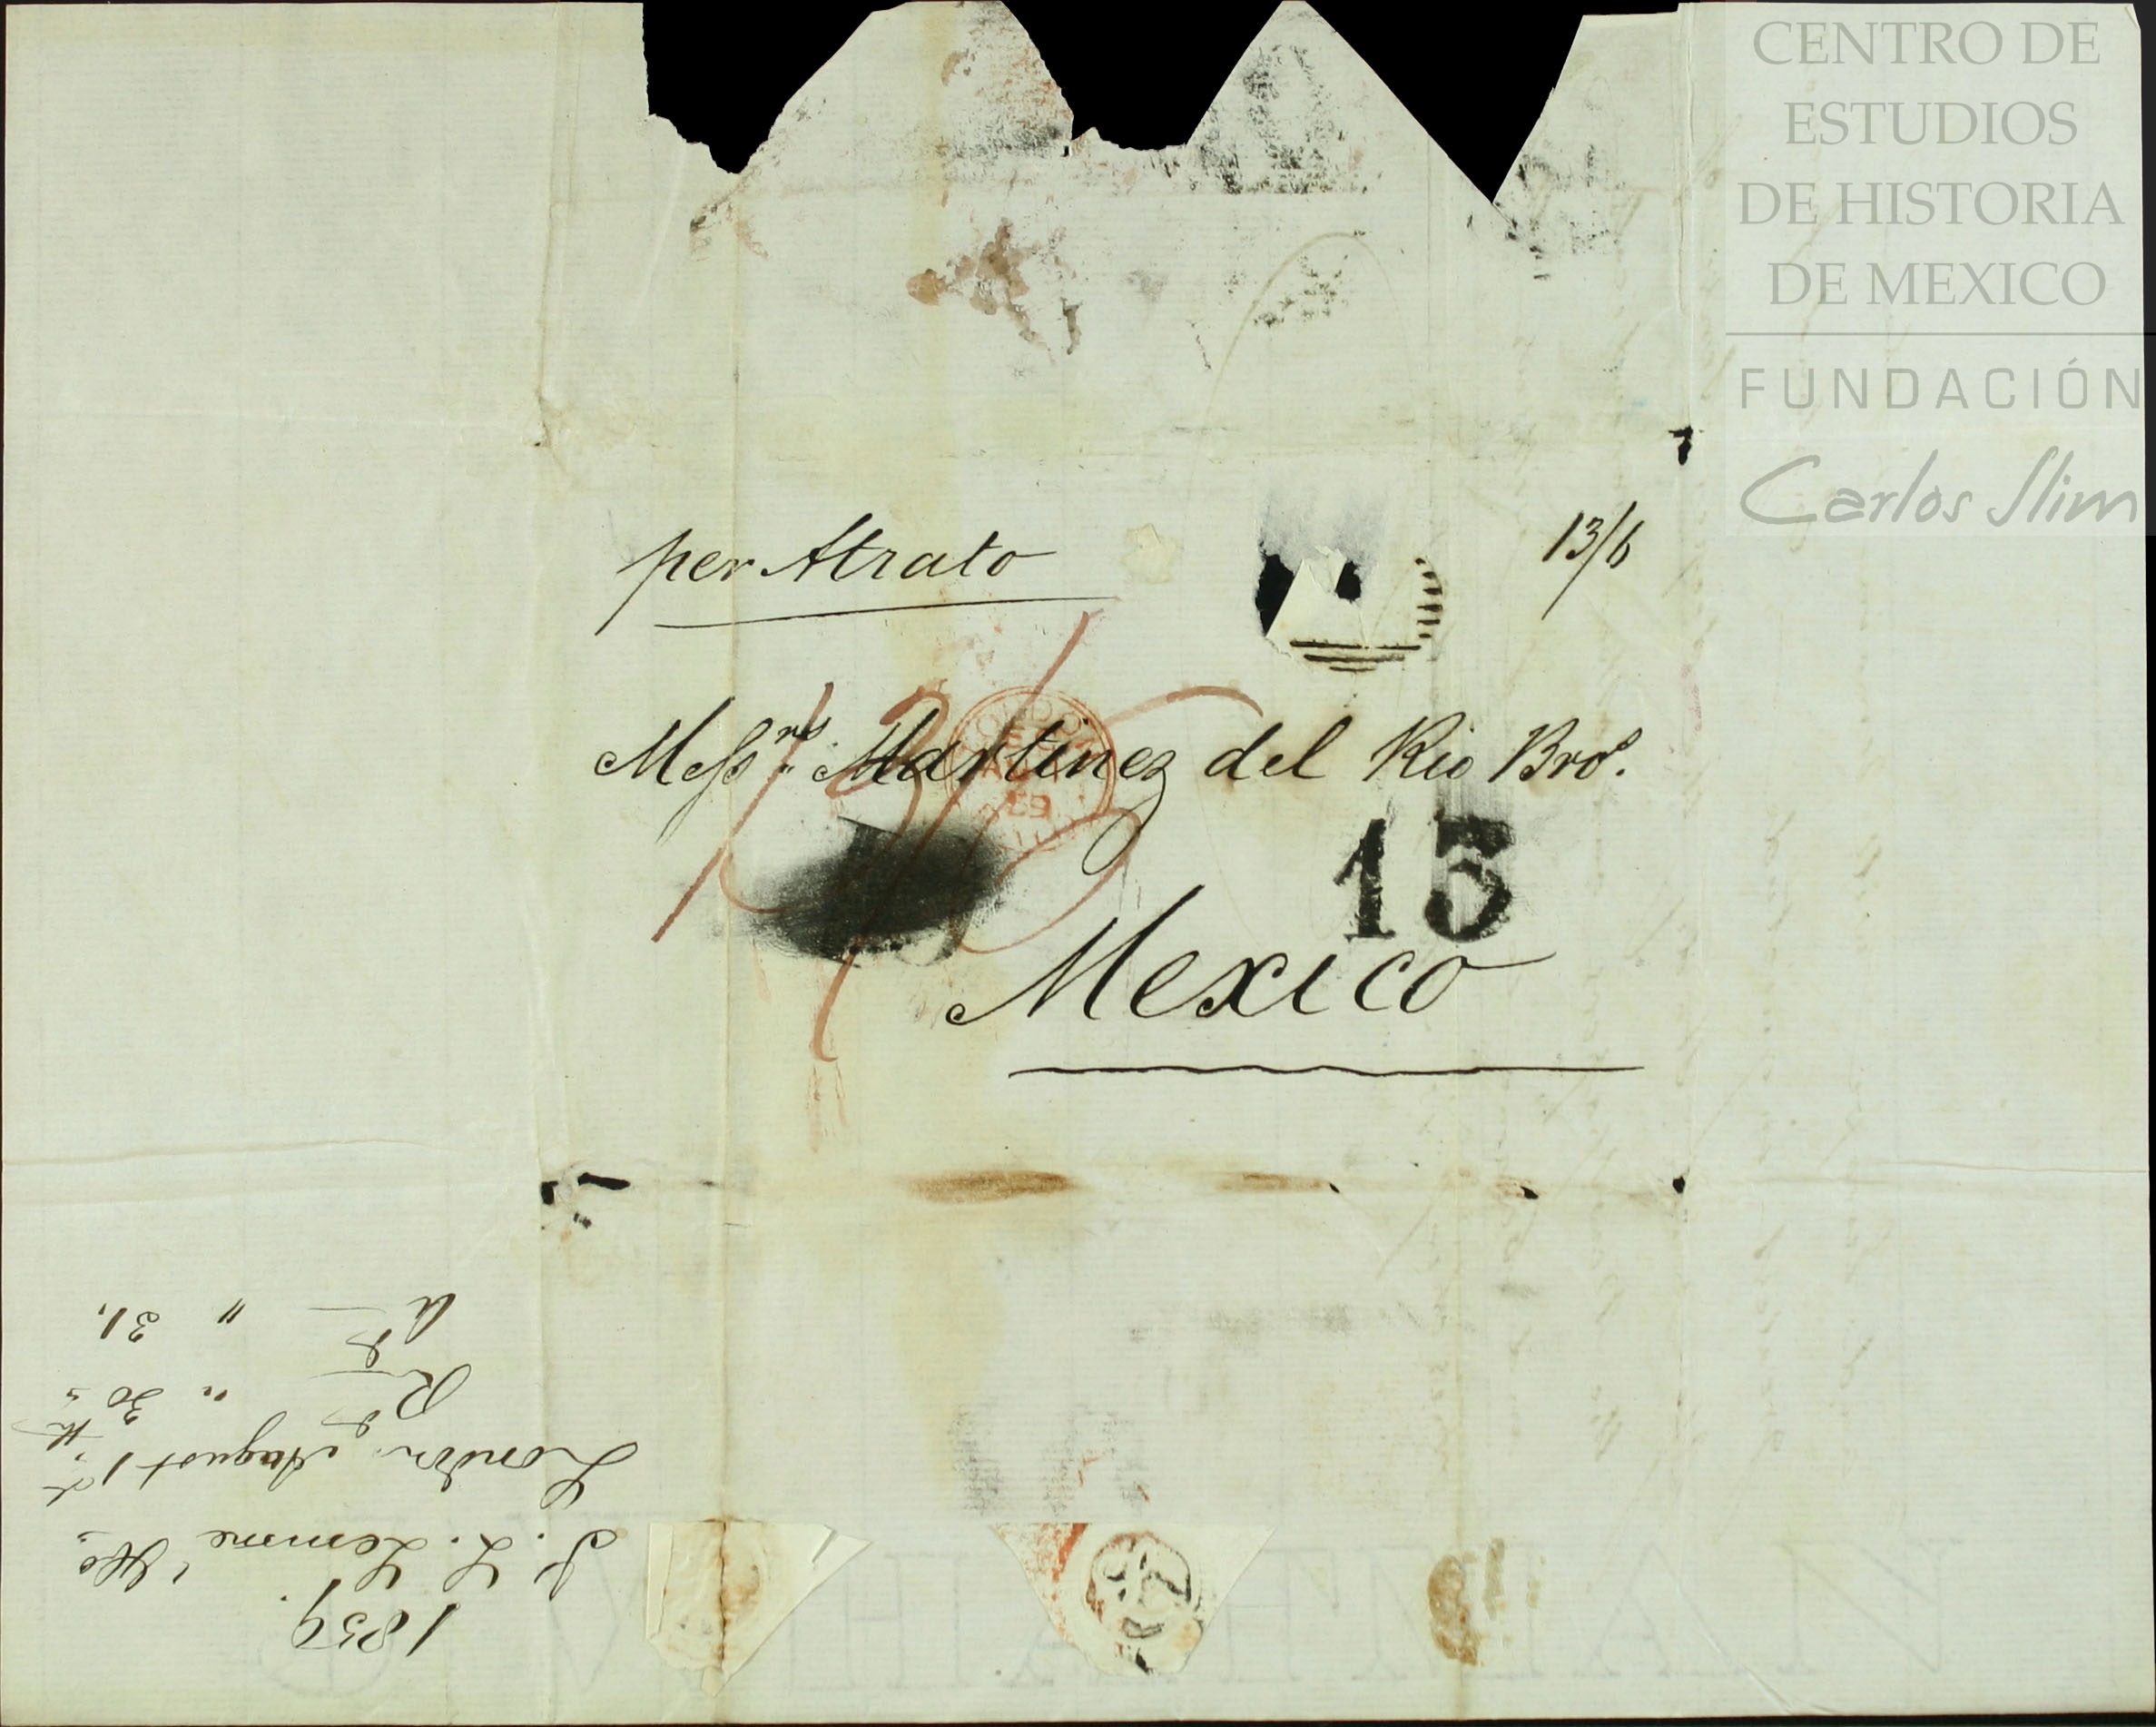 CENTRO DE
ESTUDIOS
DE HISTORIA
DE MEXICO
FUNDACIÓN
Carlos Slim
per Atrato
13/6
Messrs. Martinez del Rio Bros.
LONDON
59
15
Mexico
1859.
London, August 1st
Rd " 30
Ad " 31.